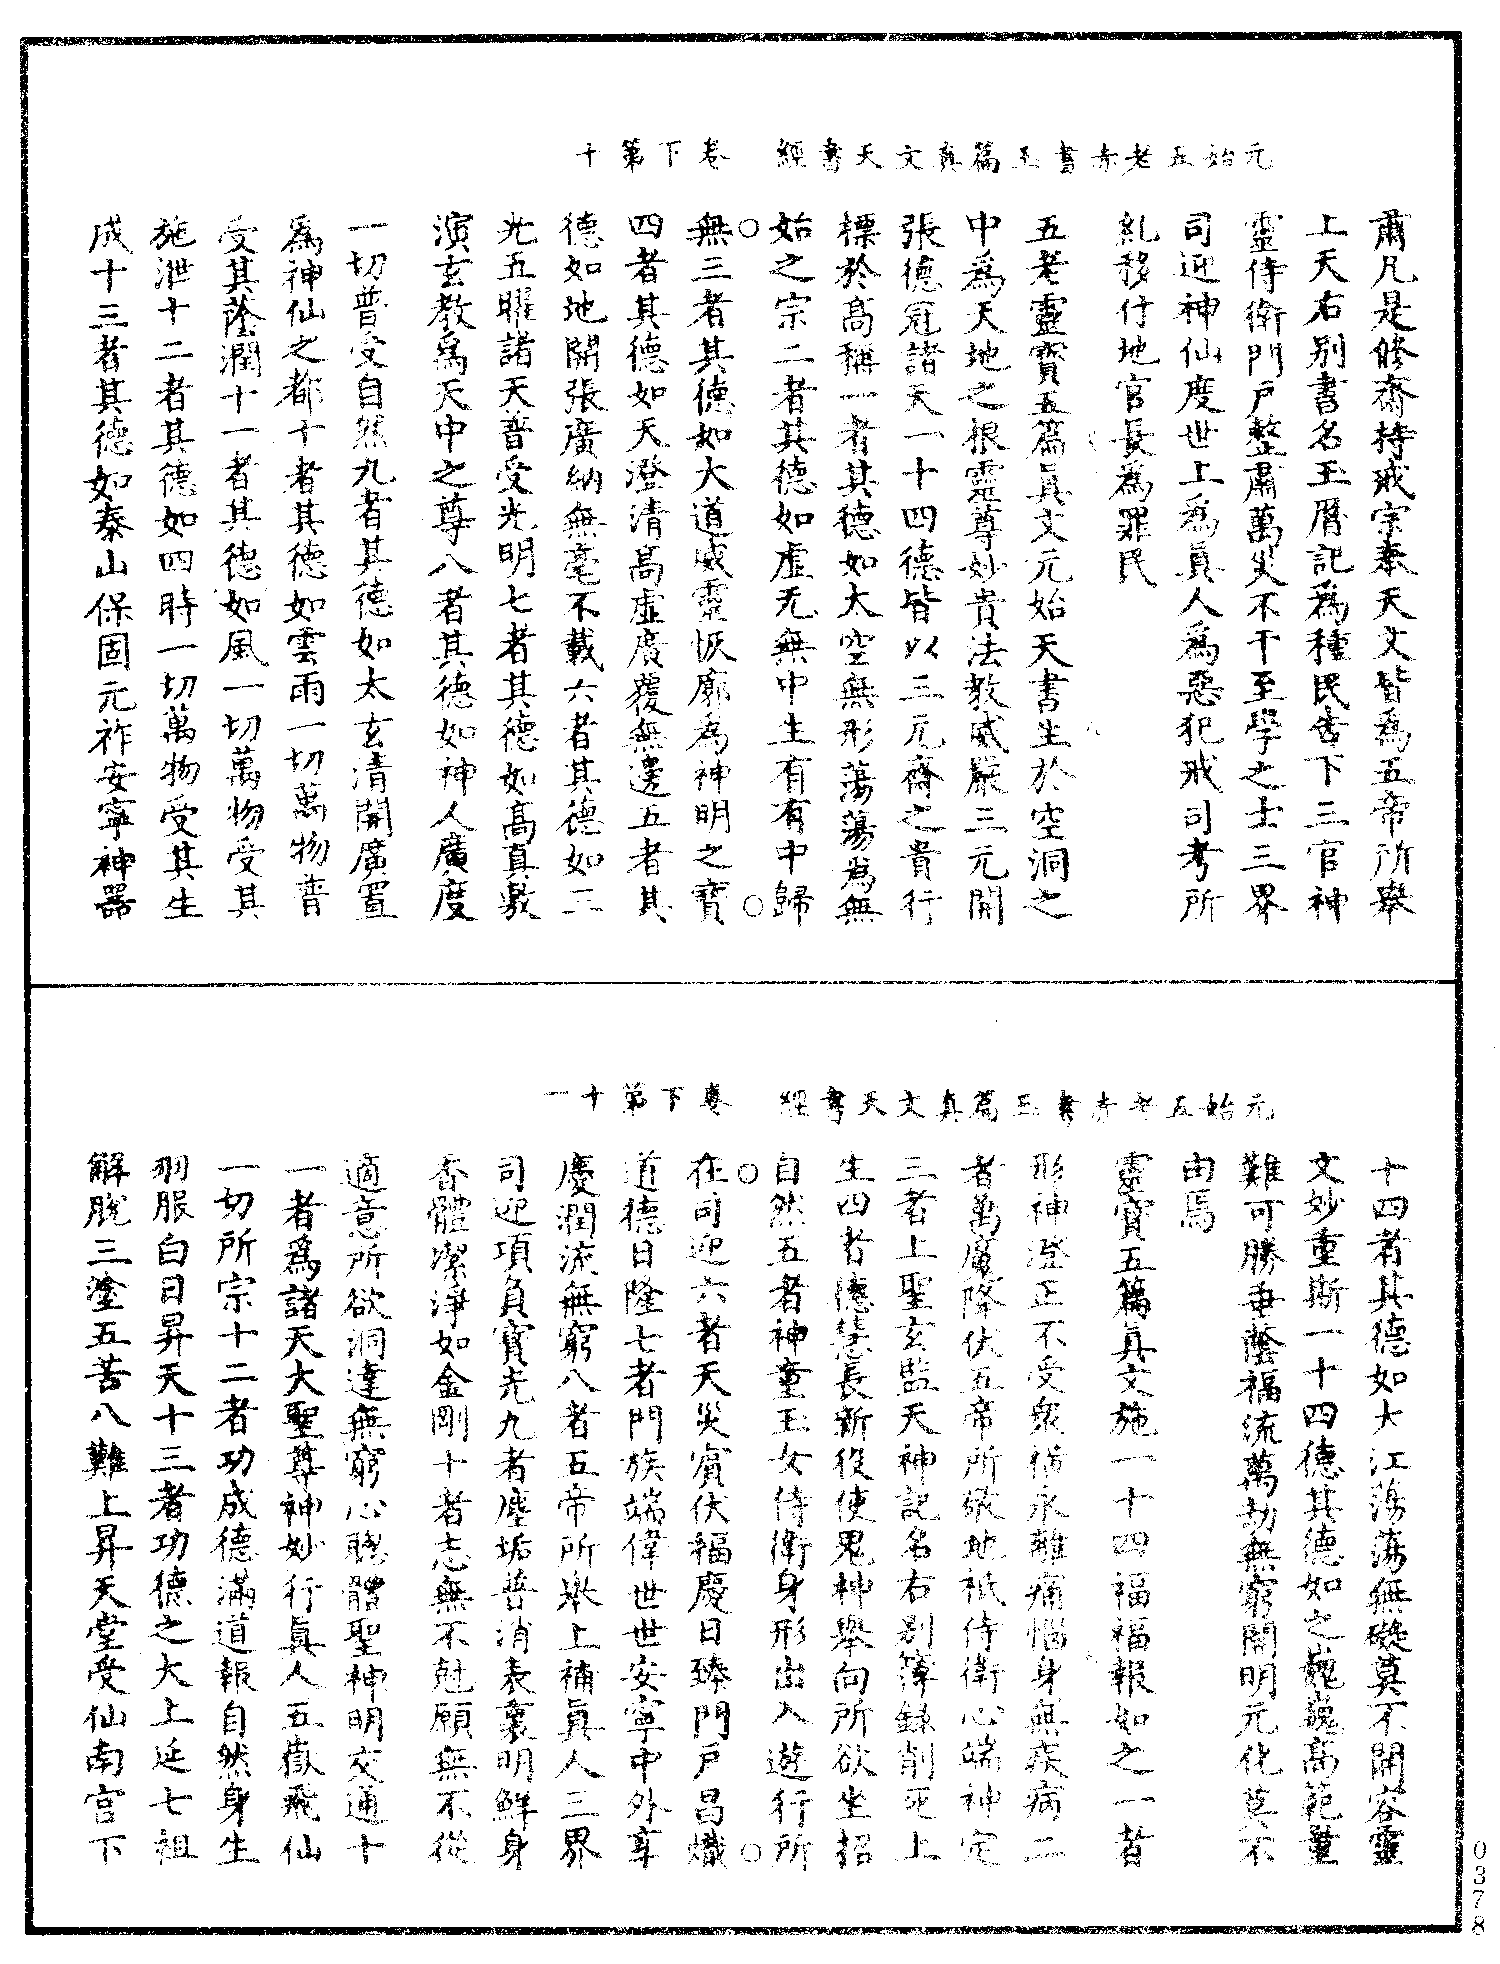 元始五老赤書玉篇真文天書經　卷下第十
肅凡是修齋持戒宗奉天文皆為五帝所舉
上天右別書名玉曆記為種民告下三官神
靈侍衛門戶整肅萬災不干至學之士三界
司迎神仙度世上為真人為惡犯戒司考所
糺移付地官長為罪民
五老靈寶五篇真文元始天書生於空洞之
中為天地之根靈尊妙貴法教威嚴三元開
張德冠諸天一十四德皆以三元齋之貴行
標於高稱一者其德如太空無形蕩蕩為無
始之宗二者其德如虛无無中生有有中歸
無三者其德如大道威靈恢廓為神明之寶
四者其德如天澄清高虛廣覆無邊五者其
德如地開張廣納無毫不載六者其德如三
光五曜諸天普受光明七者其德如高真敷
演玄教為天中之尊八者其德如神人廣度
一切普受自然九者其德如太玄清開廣置
為神仙之都十者其德如雲雨一切萬物普
受其蔭潤十一者其德如風一切萬物受其
施泄十二者其德如四時一切萬物受其生
成十三者其德如泰山保固元祚安寧神器
元始五老赤書玉篇真文天書經　卷下第十一
十四者其德如大江蕩蕩無礙莫不開容靈
文妙重斯一十四德其德如之巍巍高範量
難可勝垂蔭福流萬劫無窮開明元化莫不
由焉
靈寶五篇真文施一十四福福報如之一者
形神澄正不受眾橫永離痛惱身無疾病二
者萬魔降伏五帝所敬地祇侍衛心端神定
三者上聖玄監天神記名右別簿錄削死上
生四者德慧長新役使鬼神舉向所欲坐招
自然五者神童玉女侍衛身形出入遊行所
在司迎六者天災賓伏福慶日臻門戶昌熾
道德日隆七者門族端偉世世安寧中外享
慶潤流無窮八者五帝所舉上補真人三界
司迎項負寶光九者塵垢普消表裏明鮮身
香體潔淨如金剛十者志無不尅願無不從
適意所欲洞達無窮心聰體聖神明交通十
一者為諸天大聖尊神妙行真人五嶽飛仙
一切所宗十二者功成德滿道報自然身生
羽服白日昇天十三者功德之大上延七祖
解脫三塗五苦八難上昇天堂受仙南宮下
0378